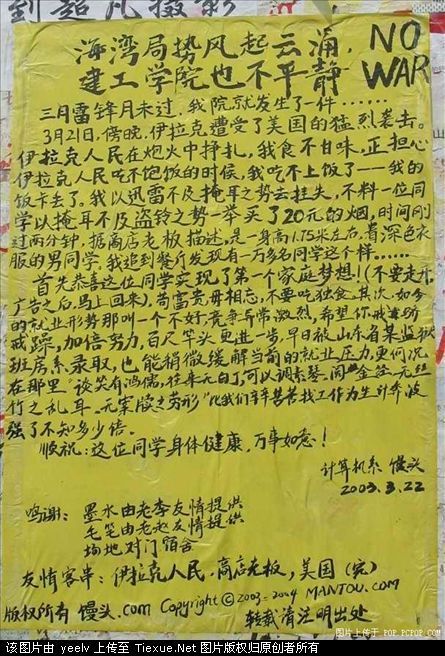 到超凡摄影
海湾局势风起云涌,
建工学院也不平静
NO
WAR
三月雷锋月未过,我院就发生了一件……
3月21日,傍晚,伊拉克遭受了美国的猛烈袭击。
伊拉克人民在炮火中挣扎,我食不甘味,正担心
伊拉克人民吃不饱饭的时候,我吃不上饭了——我的
饭卡丢了。我以迅雷不及掩耳之势去挂失,不料一位同
学以掩耳不及盗铃之势一举买了20元的烟,时间刚
过两分钟,据商店老板描述,是一身高1.75米左右,着深色衣
服的男同学,我追到餐厅发现有一万多名同学这个样……
首先恭喜这位同学实现了第一个家庭梦想!(不要走开
广告之后,马上回来),苟富贵毋相忘,不要吃独食。其次,如今
的就业形势那叫一个不好,竞争异常激烈,希望你戒骄
戒躁,加倍努力,百尺竿头更进一步,早日被山东省某监狱
班房系录取,也能稍微缓解当前的就业压力,更何况
在那里“谈笑有鸿儒,往来无白丁,可以调素琴,阅金经,无丝
竹之乱耳,无案牍之劳形”比我们辛辛苦苦找工作为生计奔波
强了不知多少倍。
顺祝:这位同学身体健康,万事如意!
计算机系 馒头
2003.3.22
鸣谢: 墨水由老李友情提供
毛笔由老赵友情提供
场地对门宿舍
友情客串:伊拉克人民,商店老板,美国(完)
版权所有 馒头.com Copyright ©2003-2004 MANTOU.COM
转载请注明出处
图片上传于 POP.PCPOP.COM
该图片由 yeelv 上传至 Tiexue.Net 图片版权归原创者所有